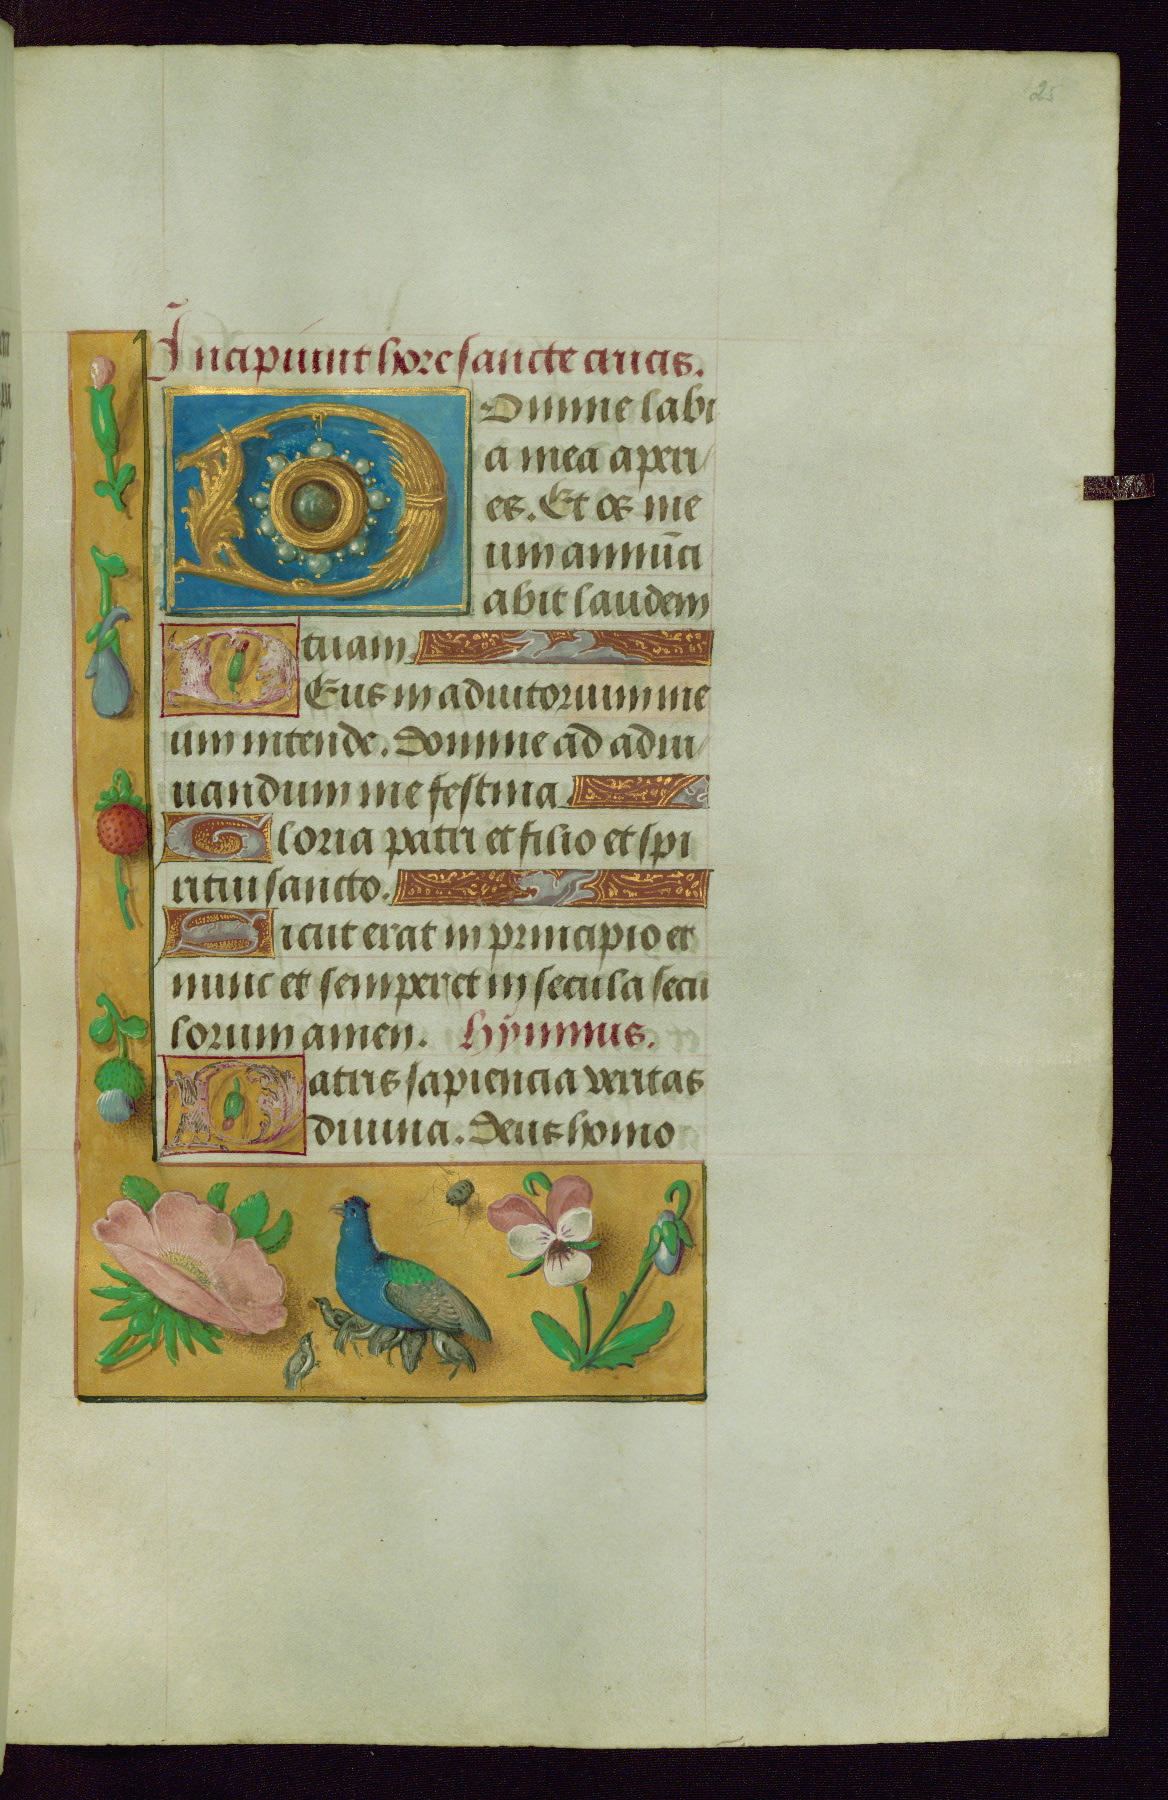 25
Incipiunt hore sancte crucis.
Domine labi
a mea aperi
es. Et os me
um annūci
abit laudem
tuam
Deus in adiutorium me
um intende. Domine ad adiu
uandum me festina
Gloria patri et filio et spi
ritui sancto.
Sicut erat in principio et
nunc et semper et in secula secu
lorum amen. Hymnus.
Patris sapiencia veritas
diuina. Deus homo